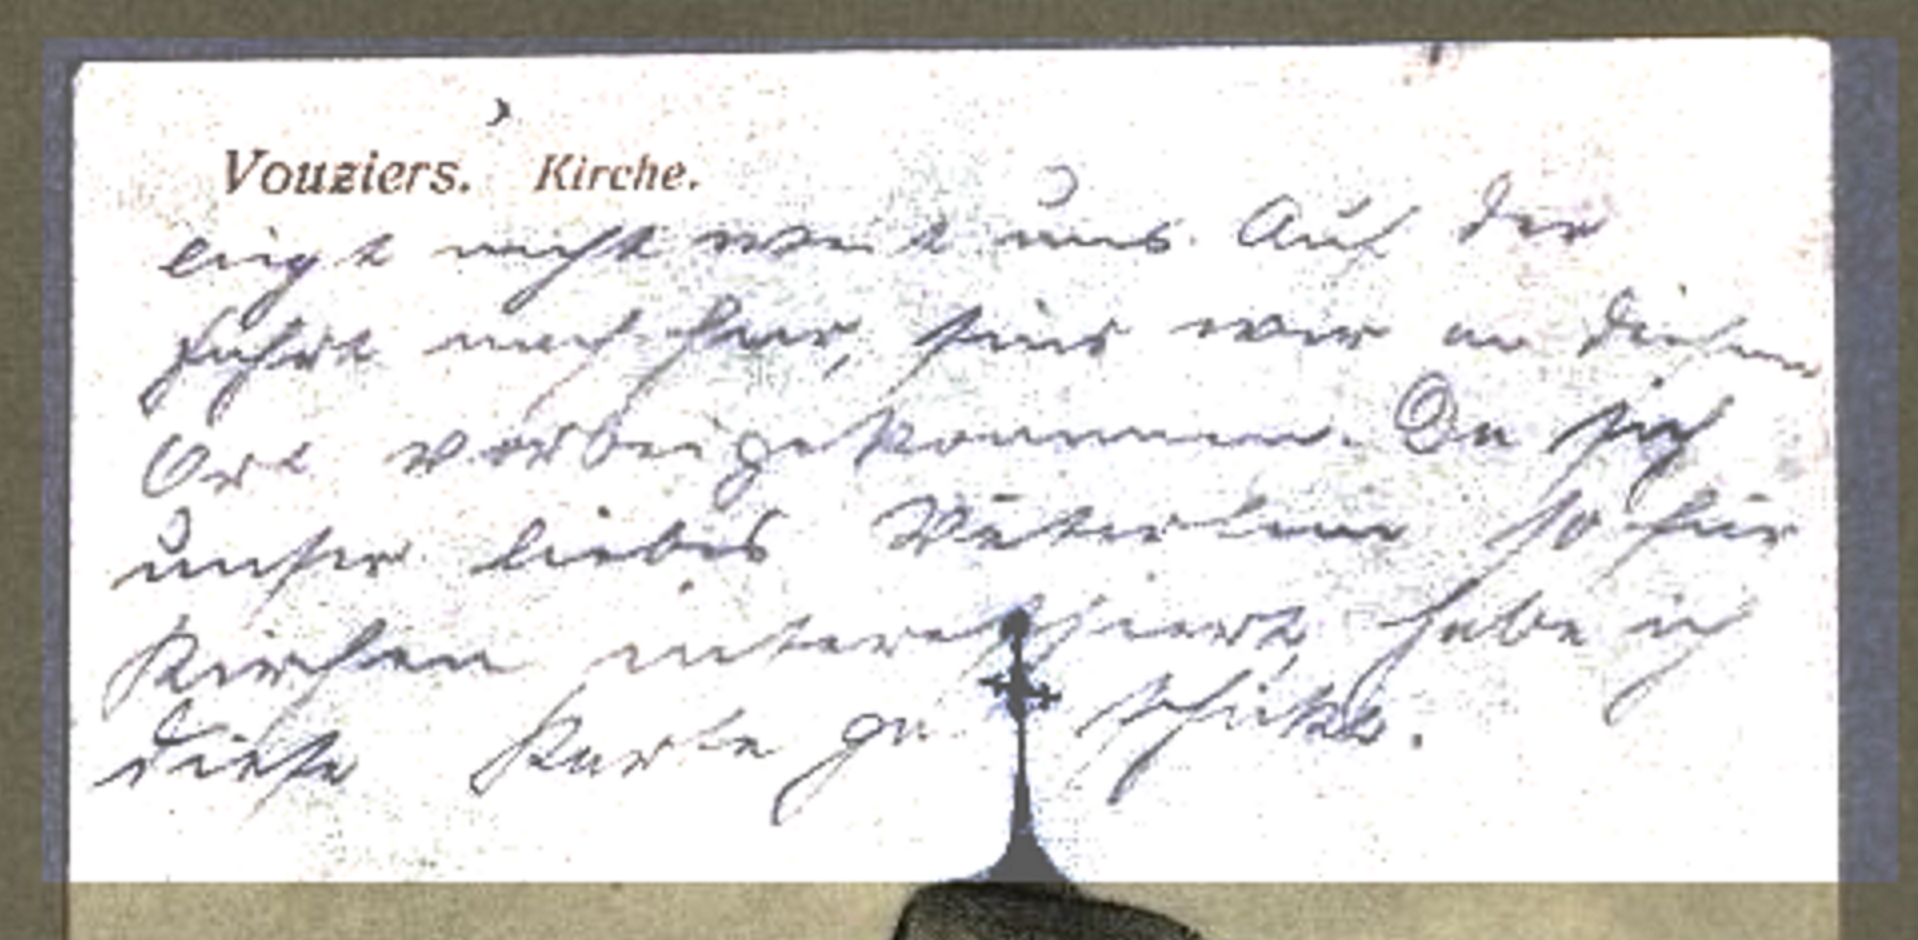 Vouziers. Kirche.
liegt nicht weit uns. Auf der
Fahrt nach hier, sind wir an diesem
Ort vorbeigekommen. Da sich
unser liebes Väterlein so für
Kirchen interessiert, habe ich
diese Karte geschickt.